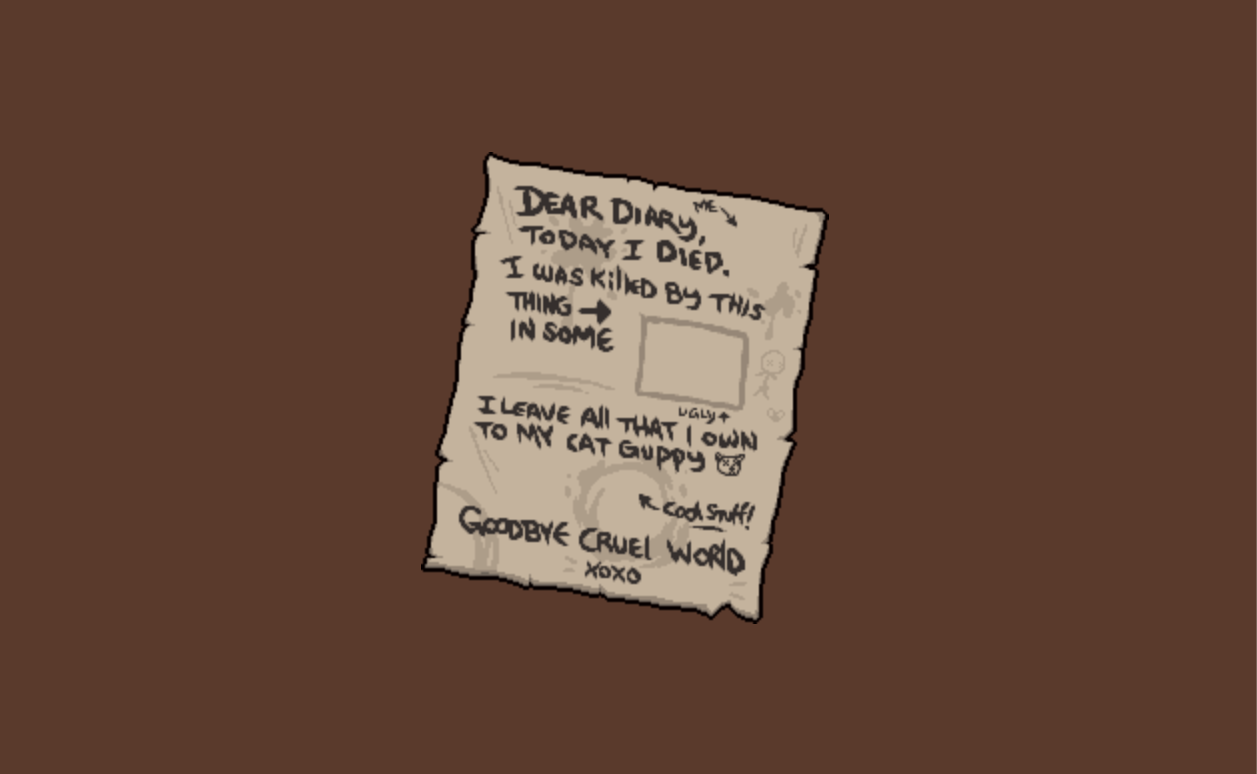 DEAR DIARY,
ME
TODAY I DIED.
I WAS KillED BY THIS
THING →
IN SOME
UGLY↑
I LEAVE All THAT I OWN
TO MY CAT GUPPY
↖ Cool Stuff!
GOODBYE CRUEl WORlD
XOXO